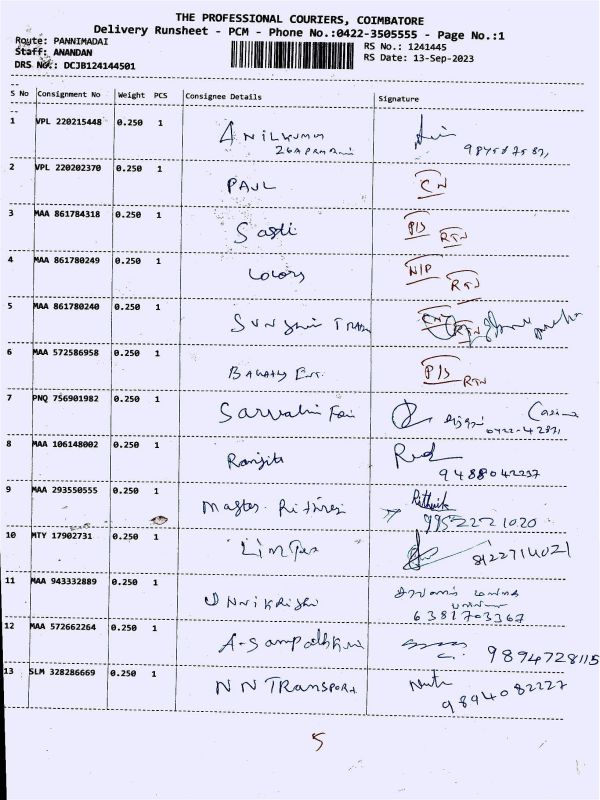 THE PROFESSIONAL COURIERS, COIMBATORE
Delivery Runsheet - PCM - Phone No.:0422-3505555 - Page No.:1
Route: PANNIMADAI
Staff: ANANDAN
DRS No.: DCJB124144501
RS No.: 1241445
RS Date: 13-Sep-2023
S No Consignment No Weight PCS Consignee Details Signature
1 VPL 220215448 0.250 1 ANILKUMAR
2 VPL 220202370 0.250 1 PAUL CN
3 MAA 861784318 0.250 1 Sasti P/S RTN
4 MAA 861780249 0.250 1 Colors N/P RTN
5 MAA 861780240 0.250 1
6 MAA 572586958 0.250 1 Ent. P/S RTN
7 PNQ 756901982 0.250 1
8 MAA 106148002 0.250 1 Ranjita
9488042237
9 MAA 293550555 0.250 1 Master. Rithik
9952221020
10 MTY 17902731 0.250 1 8122714021
11 MAA 943332889 0.250 1 Unnikrishn
6381703367
12 MAA 572662264 0.250 1 A. Sampathkum 9894728115
13 SLM 328286669 0.250 1 N N TRANSPORT
9894082227
5